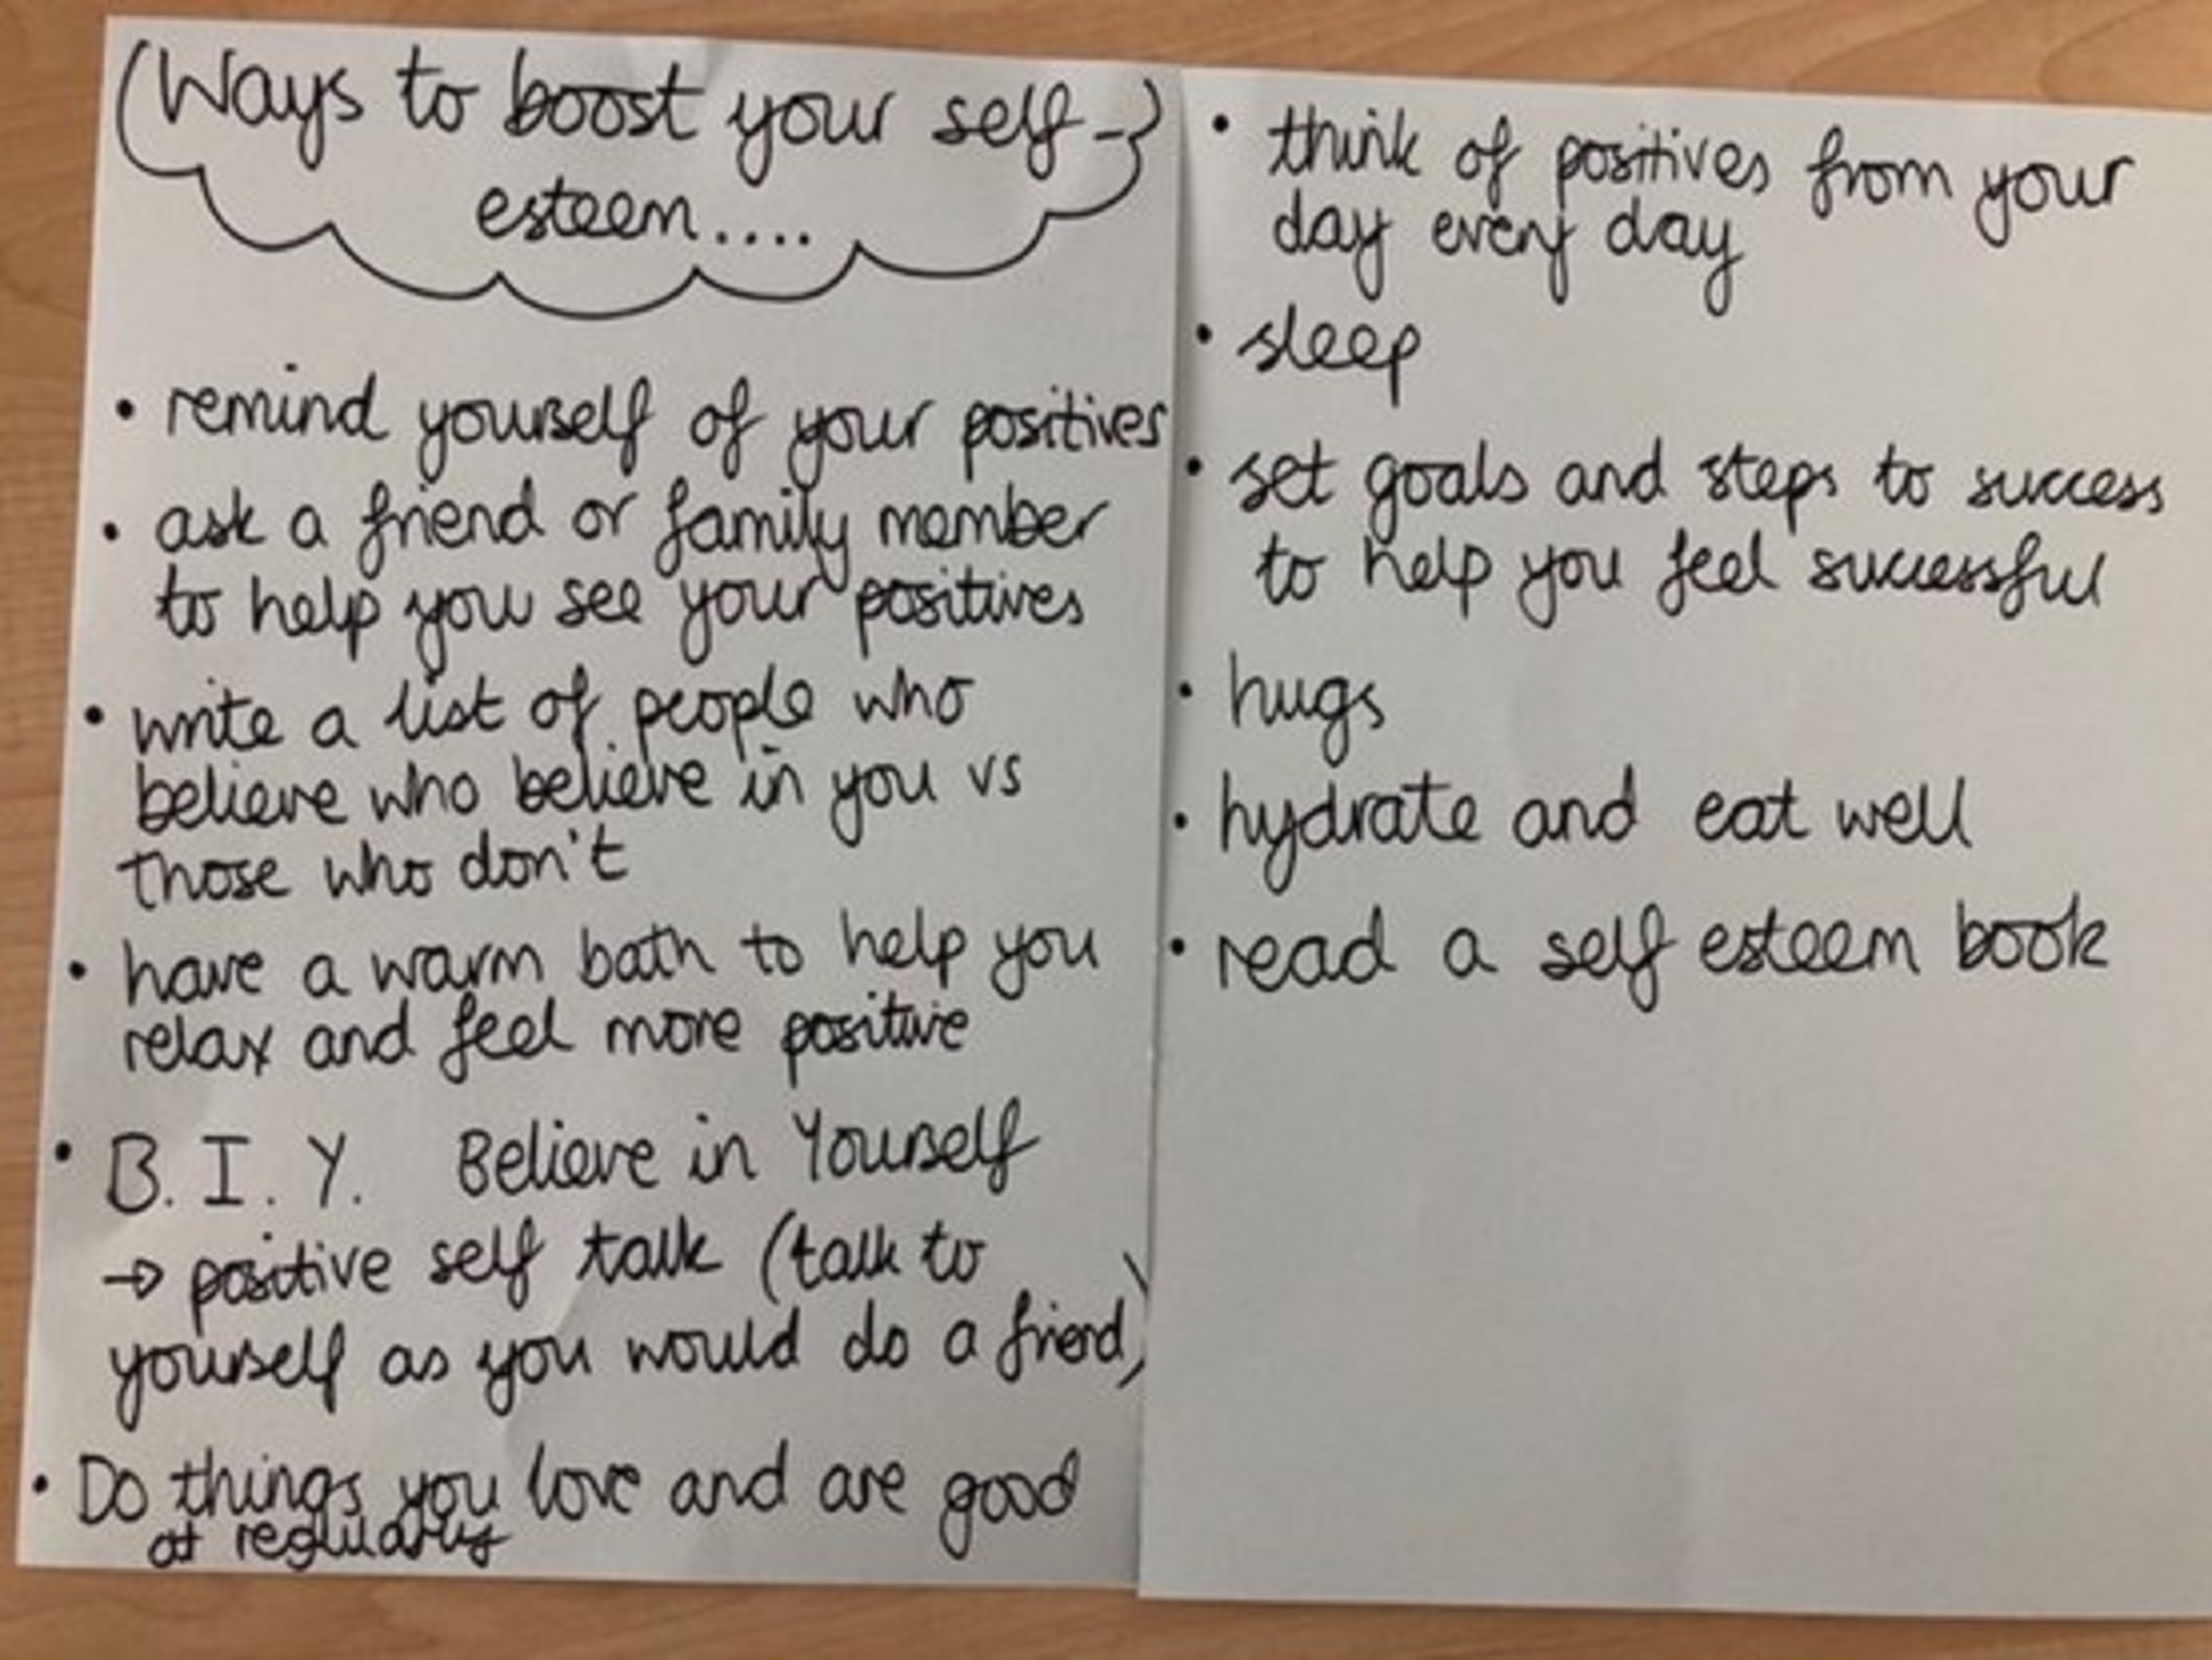 Ways to boost your self-
esteem....
• remind yourself of your positives
• ask a friend or family member
to help you see your positives
• write a list of people who
believe who believe in you vs
those who don't
• have a warm bath to help you
relax and feel more positive
• B.I.Y. Believe in Yourself
→ positive self talk (talk to
yourself as you would do a friend)
• Do things you love and are good
at regularly
• think of positives from your
day every day
• sleep
• set goals and steps to success
to help you feel successful
• hugs
• hydrate and eat well
• read a self esteem book